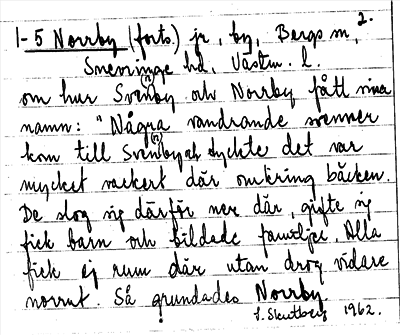 2.
1-5 Norrby (forts.) jr, by, Bergs sn,
Snevringe hd, Västm. l.
om hur Sve(n)by och Norrby fått sina
namn: "Några vandrande svenner
kom till Sve(n)by och tyckte det var
mycket vackert där omkring bäcken.
De slog sig därför ner där, gifte sig
fick barn och bildade familjer. Alla
fick ej rum där utan drog vidare
norrut. Så grundades Norrby.
1962.